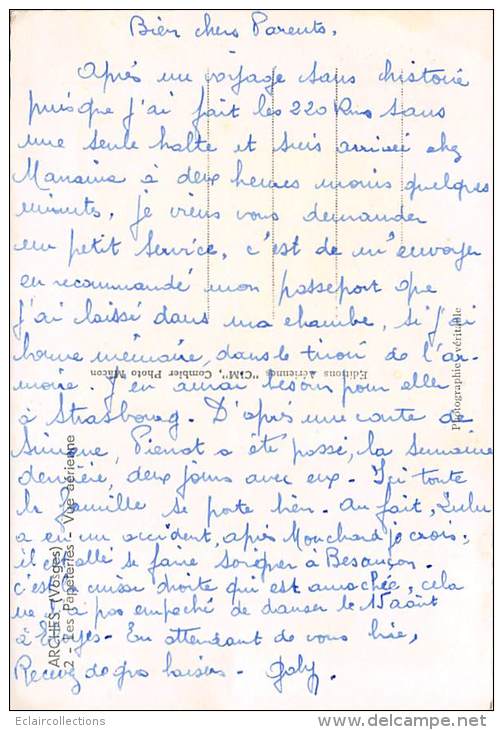 Bien chers Parents,
Après un voyage sans histoire
puisque j'ai fait les 220 Kms sans
une seule halte et suis arrivée chez
à deux heures moins quelques
minutes, je viens vous demander
un petit service, c'est de m'envoyer
en recommandé mon passeport que
j'ai laissé dans ma chambre, si j'ai
bonne mémoire, dans le tiroir de l'ar-
moire. J'en aurai besoin pour aller
à Strasbourg. D'après une carte de
Simone, Pierrot a été passé, la semaine
dernière, deux jours avec eux. Ici toute
la famille se porte bien. Au fait, Lulu
a eu un accident, après Mouchard je crois,
il est allé se faire soigner à Besançon.
c'est la cuisse droite qui est amochée, cela
ne l'a pas empêché de danser le 15 août
à En attendant de vous lire,
Recevez de gros baisers. Gaby.
ARCHES (Vosges)
2 - Les Papeteries - Vue aérienne
Editions Aériennes "CIM", Combier Photo Mâcon
Photographie véritable
Eclaircollections
www.delcampe.net